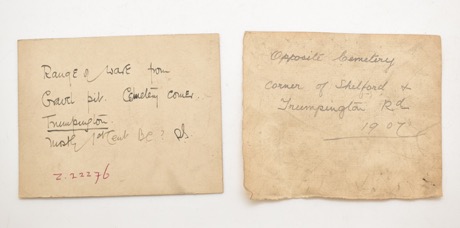 Range of ware from
Gravel pit. Cemetery corner.
Trumpington.
Mostly 1st Cent BC?
Z.22276
Opposite Cemetery
corner of Shelford &
Trumpington Rd
1907